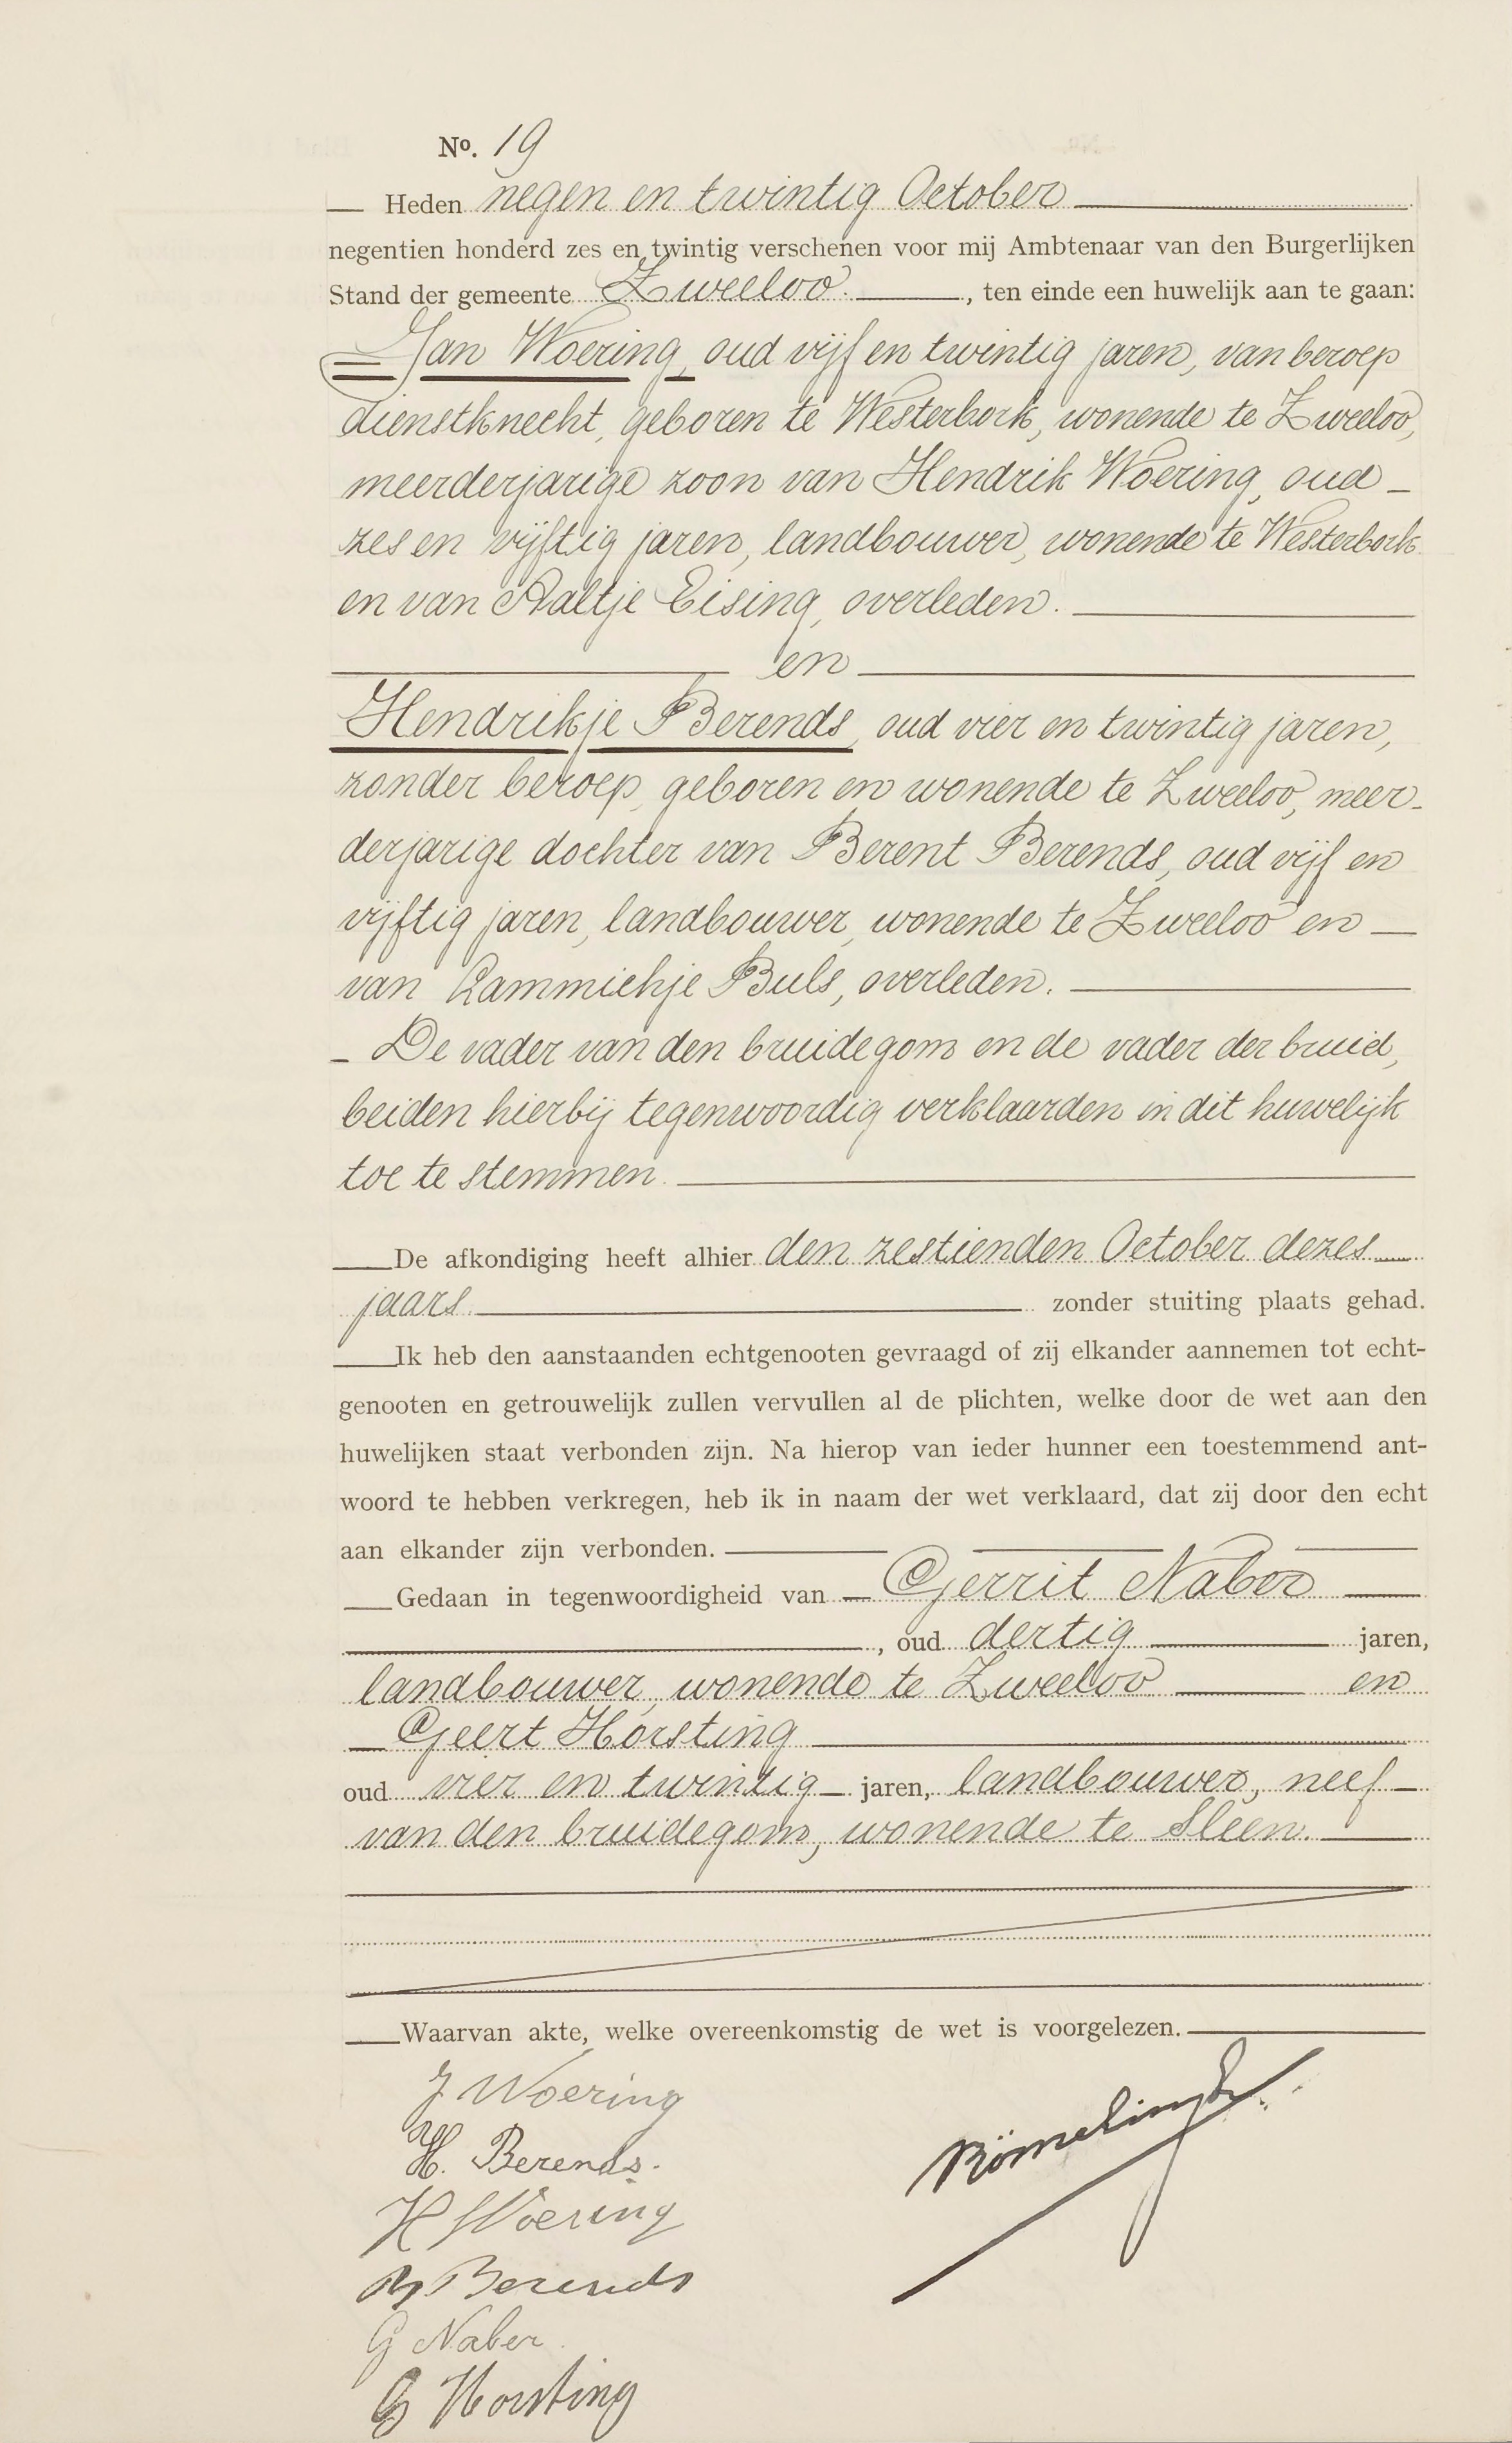 No. 19
Heden negen en twintig October
negentien honderd zes en twintig verschenen voor mij Ambtenaar van den Burgerlijken
Stand der gemeente Zweeloo. , ten einde een huwelijk aan te gaan:
Jan Woering, oud vijf en twintig jaren, van beroep
dienstknecht, geboren te Westerbork, wonende te Zweeloo,
meerderjarige zoon van Hendrik Woering, oud
zes en vijftig jaren, landbouwer, wonende te Westerbork
en van Aaltje Eising, overleden.
en
Hendrikje Berends, oud vier en twintig jaren,
zonder beroep, geboren en wonende te Zweeloo, meer-
derjarige dochter van Berent Berends, oud vijf en
vijftig jaren, landbouwer, wonende te Zweeloo en
van Lammichje Buls, overleden.
De vader van den bruidegom en de vader der bruid,
beiden hierbij tegenwoordig verklaarden in dit huwelijk
toe te stemmen.
De afkondiging heeft alhier den zestienden October dezes
jaars zonder stuiting plaats gehad.
Ik heb den aanstaanden echtgenooten gevraagd of zij elkander aannemen tot echt-
genooten en getrouwelijk zullen vervullen al de plichten, welke door de wet aan den
huwelijken staat verbonden zijn. Na hierop van ieder hunner een toestemmend ant-
woord te hebben verkregen, heb ik in naam der wet verklaard, dat zij door den echt
aan elkander zijn verbonden.
Gedaan in tegenwoordigheid van Gerrit Naber
, oud dertig jaren,
landbouwer, wonende te Zweeloo en
Geert Horsting
oud vier en twintig jaren, landbouwer, neef
van den bruidegom, wonende te Sleen.
Waarvan akte, welke overeenkomstig de wet is voorgelezen.
J Woering
H. Berends.
H Woering
B Berends
G Naber
G Horsting